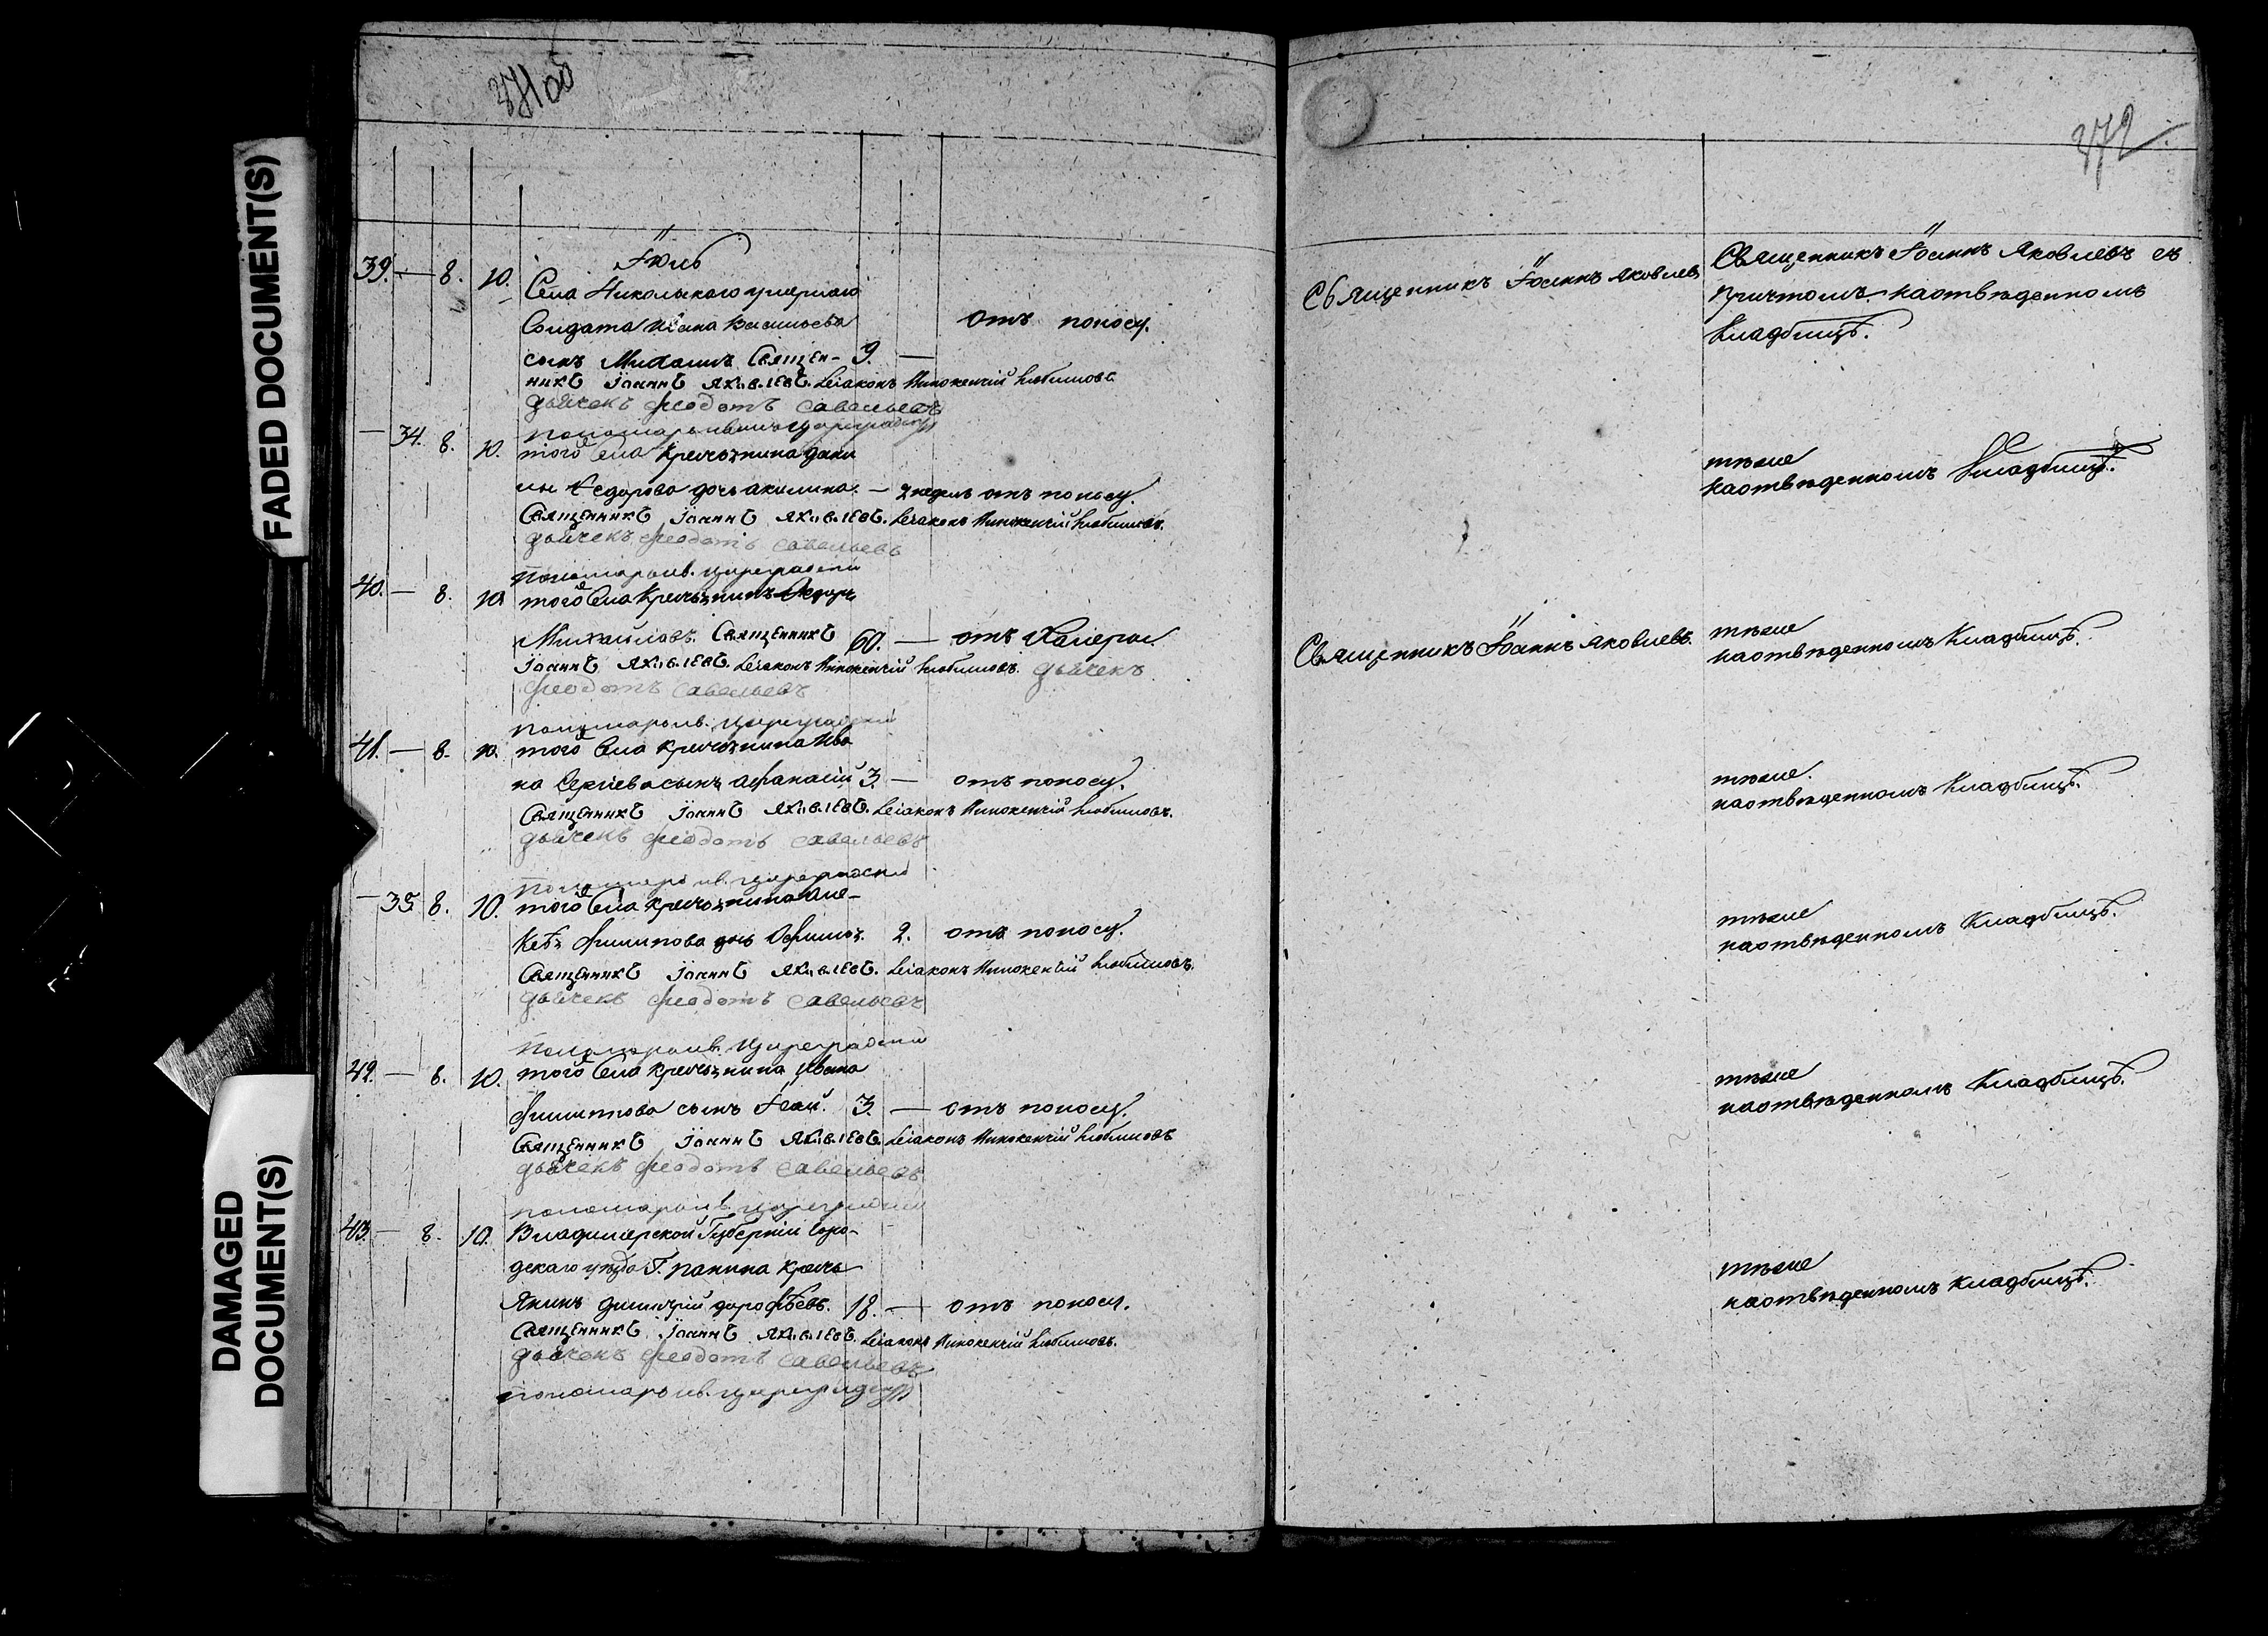 FADED DOCUMENT(S)
DAMAGED
DOCUMENT(S)
371об
Іюль
39. — 8. 10. Села Никольскаго умершаго
Солдата Ивана Васильева отъ поносу.
сынъ Михаилъ Священ- 9. —
никъ Іоаннъ Яковлевъ. Діаконъ Иннокентій Любимовъ
дьячекъ Феодотъ Савельевъ
пономарь Ив. Цареградскій
— 34. 8. 10. того Села Крестьянина Дани
лы Федорова дочь Акилина. — 7 недель отъ поносу.
Священникъ Іоаннъ Яковлевъ. Діаконъ Иннокентій Любимовъ.
дьячекъ Феодотъ Савельевъ
пономарь Ив. Цареградскій
40. — 8. 10 того Села Крестьянинъ
Михайловъ. Священникъ 60. — отъ Халеры.
Іоаннъ Яковлевъ. Діаконъ Иннокентій Любимовъ. дьячекъ
Феодотъ Савельевъ
пономарь Ив. Цареградскій
41. — 8. 10. того Села Крестьянина Ива
на Сергіева сынъ Афанасій 3. — отъ поносу.
Священникъ Іоаннъ Яковлевъ. Діаконъ Иннокентій Любимовъ.
дьячекъ Феодотъ Савельевъ
пономарь Ив. Цареградскій
— 35. 8. 10. того Села Крестьянина Але-
Филипова дочь 2. отъ поносу.
Священникъ Іоаннъ Яковлевъ. Діаконъ Иннокентій Любимовъ.
дьячекъ Феодотъ Савельевъ
пономарь Ив. Цареградскій
42. — 8. 10. того Села Крестьянина Ивана
Филиппова сынъ 3. — отъ поносу.
Священникъ Іоаннъ Яковлевъ. Діаконъ Иннокентій Любимовъ
дьячекъ Феодотъ Савельевъ
пономарь Ив. Цареградскій
43. — 8. 10. Владимерской Губерніи Горо-
декаго уѣзда Г. Панина Кресть
янинъ Димитрій Дорофѣевъ. 18. — отъ поносу.
Священникъ Іоаннъ Яковлевъ. Діаконъ Иннокентій Любимовъ.
дьячекъ Феодотъ Савельевъ
пономарь Ив. Цареградскій
372
Священникъ Іоаннъ Яковлевъ
Священникъ Іоаннъ Яковлевъ съ
причтомъ наотвѣденномъ
Кладбищѣ.
тѣже
наотвѣденномъ Кладбищѣ.
Священникъ Іоаннъ Яковлевъ.
тѣже
наотвѣденномъ Кладбищѣ.
тѣже.
наотвѣденномъ Кладбищѣ.
тѣже
наотвѣденномъ Кладбищѣ.
тѣже
наотвѣденномъ Кладбищѣ.
тѣже
наотвѣденномъ кладбищѣ.